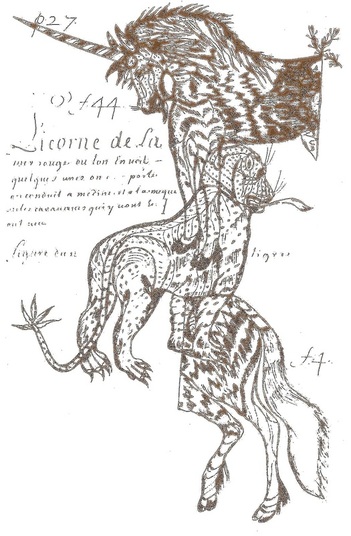 p.27.
f.44
Licorne de La
mer rouge ou lon En voit
quelques unes on porte
conduit a medine et a la meque
les caravannes qui y vont
ont veu
figure dun tigre
f.4.